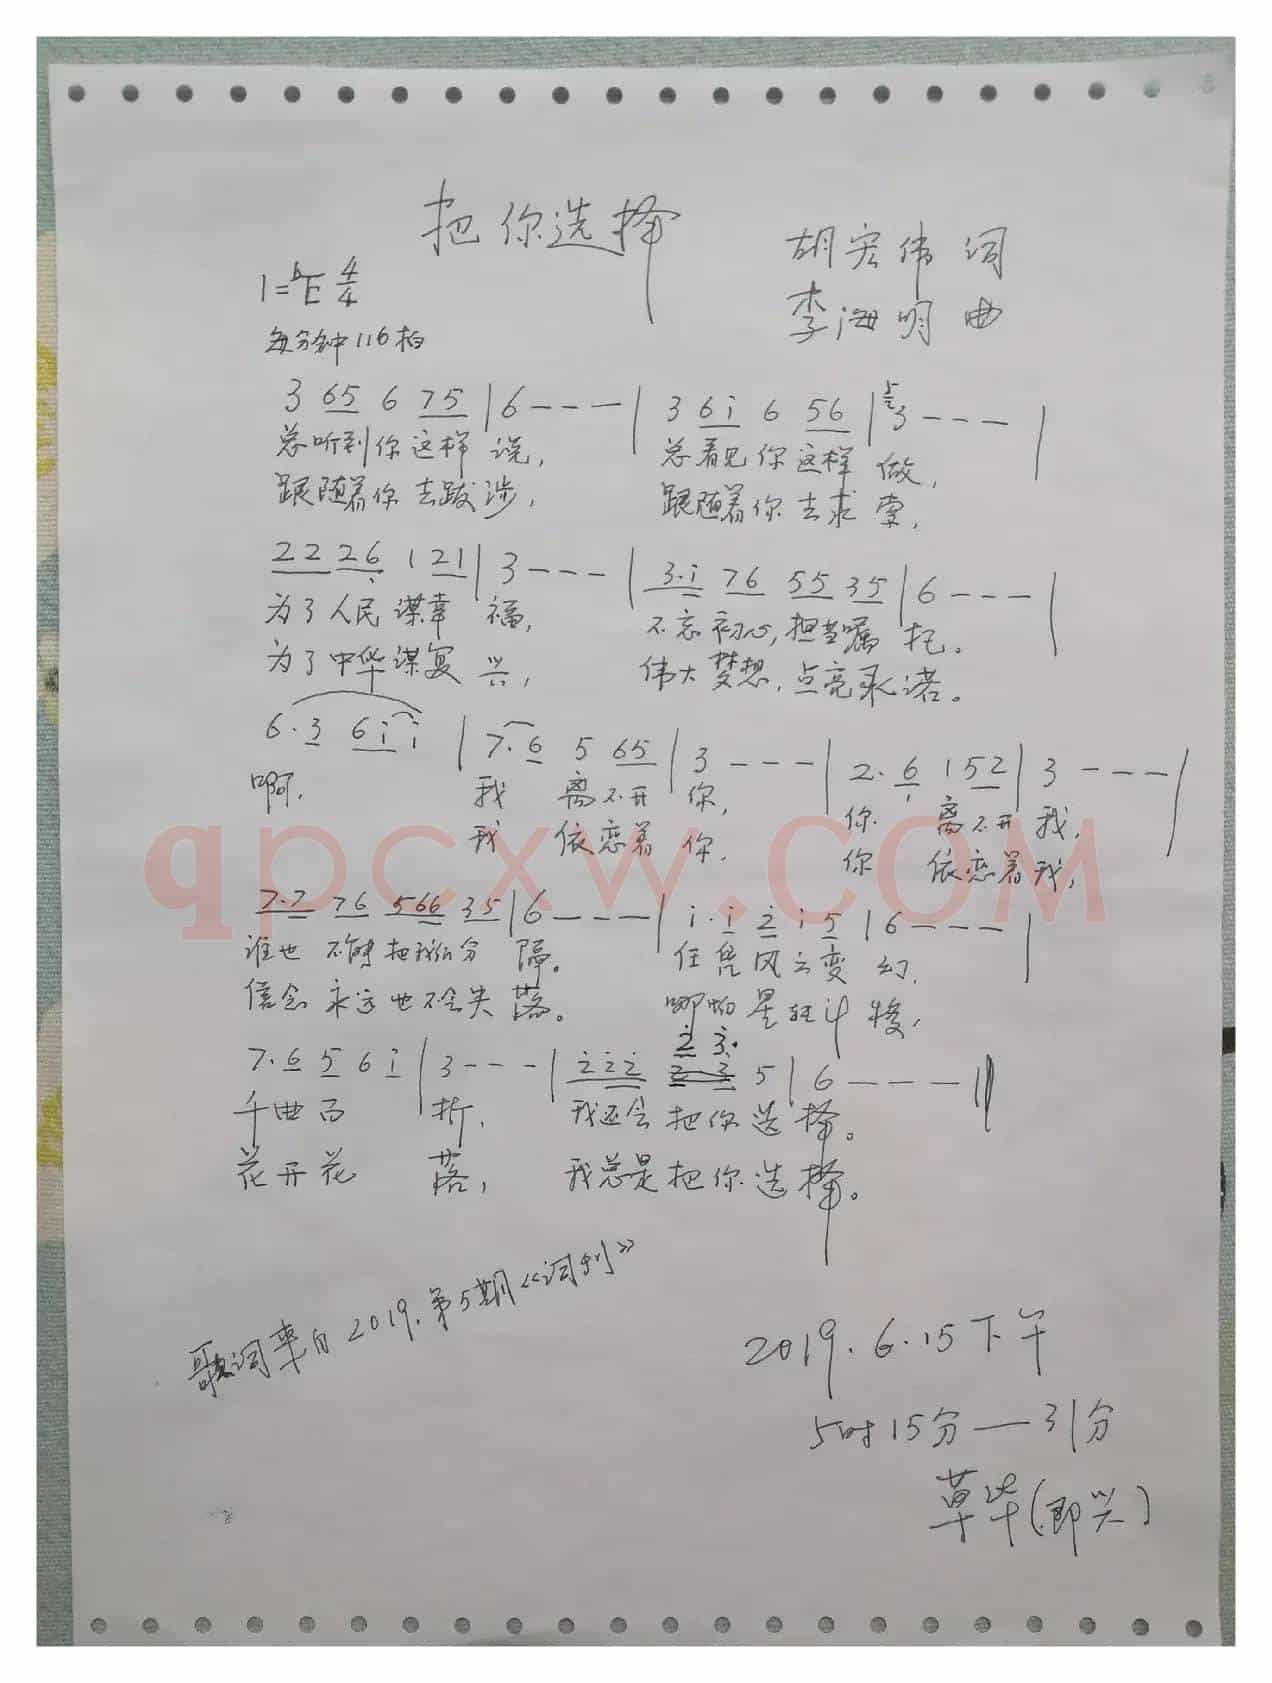 把你选择
胡宏伟 词
1=♭E 4/4
李海明 曲
每分钟116拍
3 65 6 75 | 6 - - - | 3 6i 6 56 | 5 3 - - - |
总听到你这样说, 总看见你这样做,
跟随着你去跋涉, 跟随着你去求索,
22 26 1 21 | 3 - - - | 3·i 76 55 35 | 6 - - - |
为了人民谋幸福, 不忘初心,担当嘱托。
为了中华谋复兴, 伟大梦想,点亮承诺。
6·3 6i i | 7·6 5 65 | 3 - - - | 2·6 1 52 | 3 - - - |
啊, 我离不开你, 你离不开我,
我依恋着你, 你依恋着我,
qpcxw.COM
7·7 76 566 35 | 6 - - - | i·i 2 i 5 | 6 - - - |
谁也不能把我们分隔。 任凭风云变幻,
信念永远也不会失落。 哪怕星转斗移,
2 3·
7·6 5 6 i | 3 - - - | 222 2 3 5 | 6 - - - ||
千曲百折, 我还会把你选择。
花开花落, 我总是把你选择。
歌词来自2019.第5期《词刊》
2019.6.15下午
5时15分—31分
草毕(即兴)